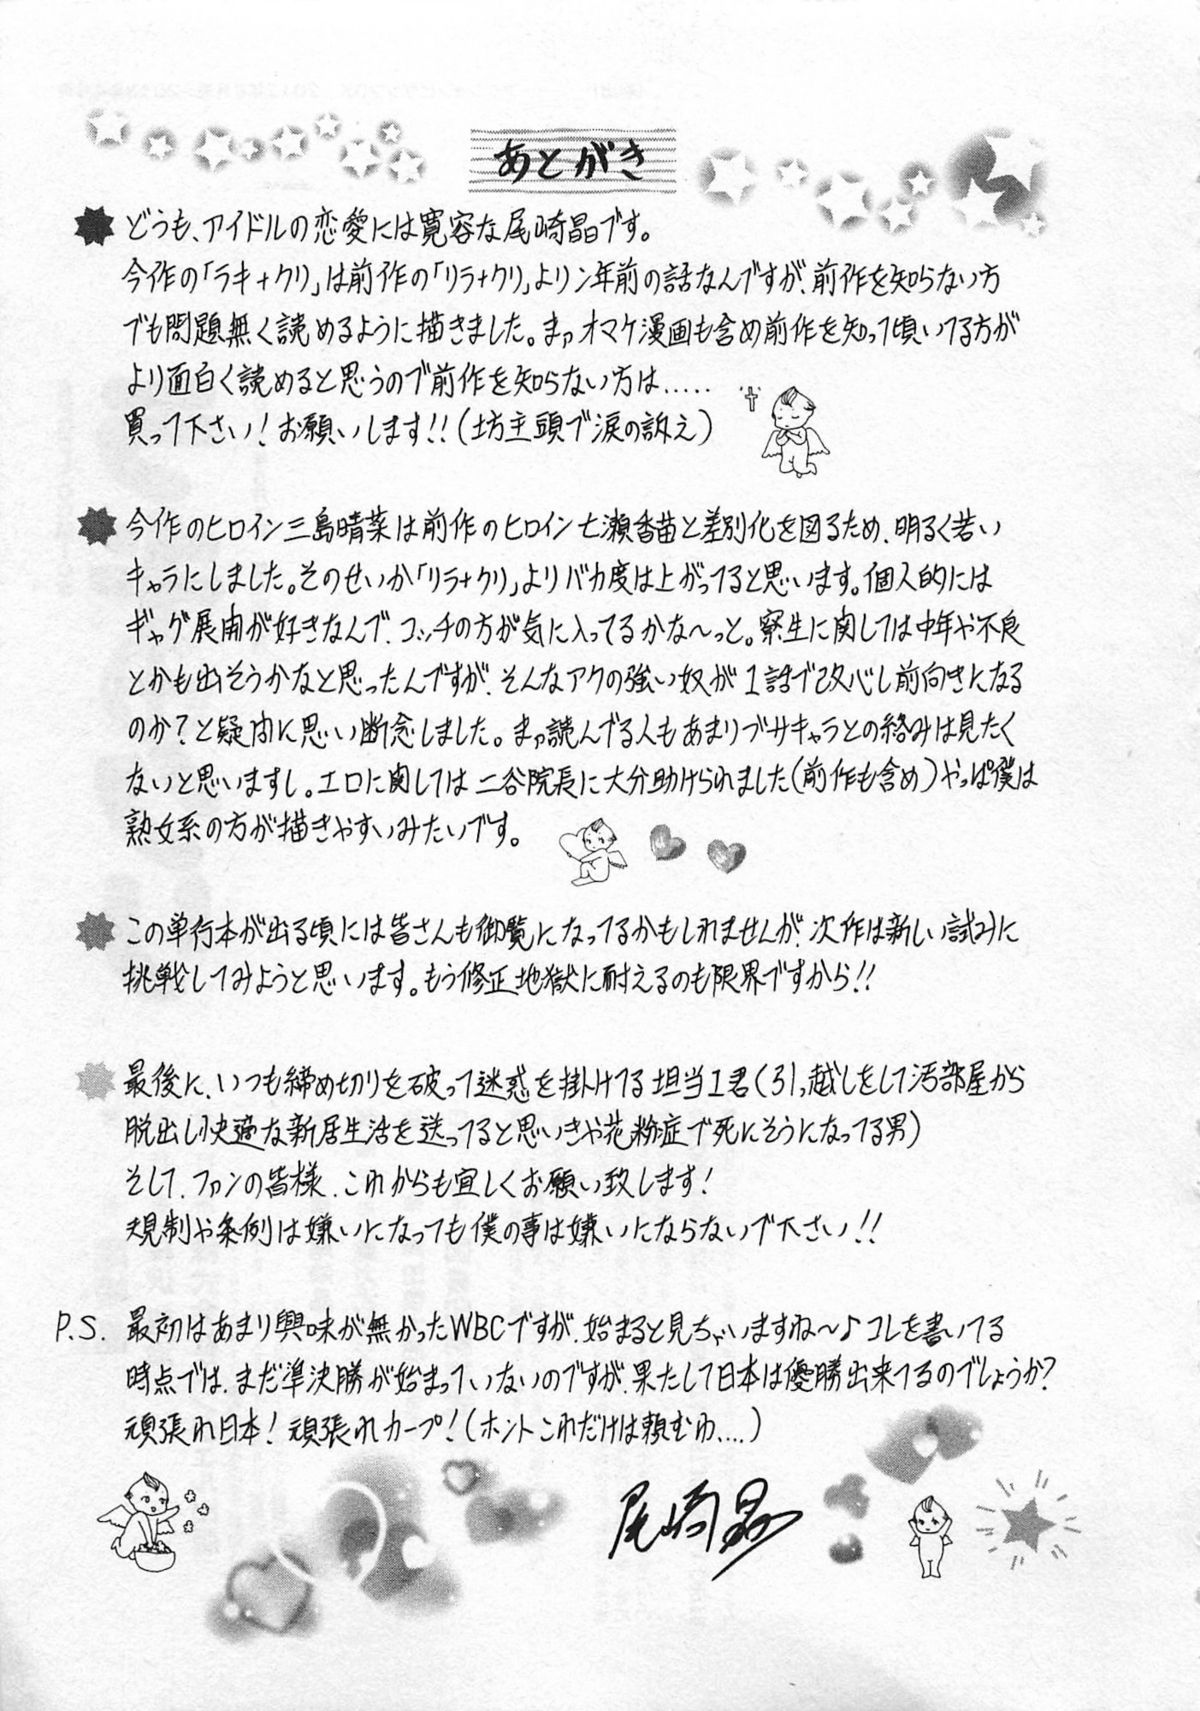 あとがき
どうも、アイドルの恋愛には寛容な尾崎晶です。
今作の「ラキ+クリ」は前作の「リラ+クリ」よりン年前の話なんですが、前作を知らない方
でも問題無く読めるように描きました。まァオマケ漫画も含め前作を知って頂いてる方が
より面白く読めると思うので前作を知らない方は.....
買って下さい!お願いします!!(坊主頭で涙の訴え)
今作のヒロイン三島晴菜は前作のヒロイン七瀬香苗と差別化を図るため、明るく若い
キャラにしました。そのせいか「リラ+クリ」よりバカ度は上がってると思います。個人的には
ギャグ展開が好きなんで、コッチの方が気に入ってるかな〜っと。寮生に関しては中年や不良
とかも出そうかなと思ったんですが、そんなアクの強い奴が1話で改心し前向きになる
のか?と疑問に思い断念しました。まァ読んでる人もあまりブサキャラとの絡みは見たく
ないと思いますし。エロに関しては二谷院長に大分助けられました(前作も含め)やっぱ僕は
熟女系の方が描きやすいみたいです。
この単行本が出る頃には皆さんも御覧になってるかもしれませんが、次作は新しい試みに
挑戦してみようと思います。もう修正地獄に耐えるのも限界ですから!!
最後に、いつも締め切りを破って迷惑を掛けてる担当I君(引っ越しをして汚部屋から
脱出し快適な新居生活を送ってると思いきや花粉症で死にそうになってる男)
そして、ファンの皆様、これからも宜しくお願い致します!
規制や条例は嫌いになっても僕の事は嫌いにならないで下さい!!
P.S. 最初はあまり興味が無かったWBCですが、始まると見ちゃいますね〜♪コレを書いてる
時点では、まだ準決勝が始まっていないのですが、果たして日本は優勝出来てるのでしょうか?
頑張れ日本!頑張れカープ!(ホントこれだけは頼むわ....)
尾崎晶